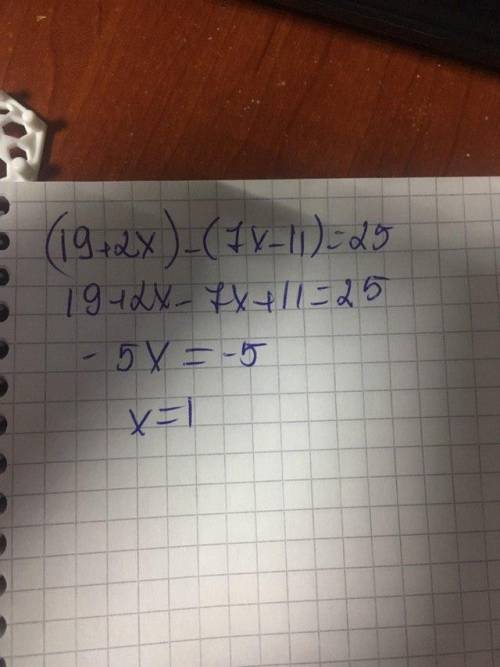 (19+2x)-(7x-11)=25
19+2x-7x+11=25
-5x=-5
x=1